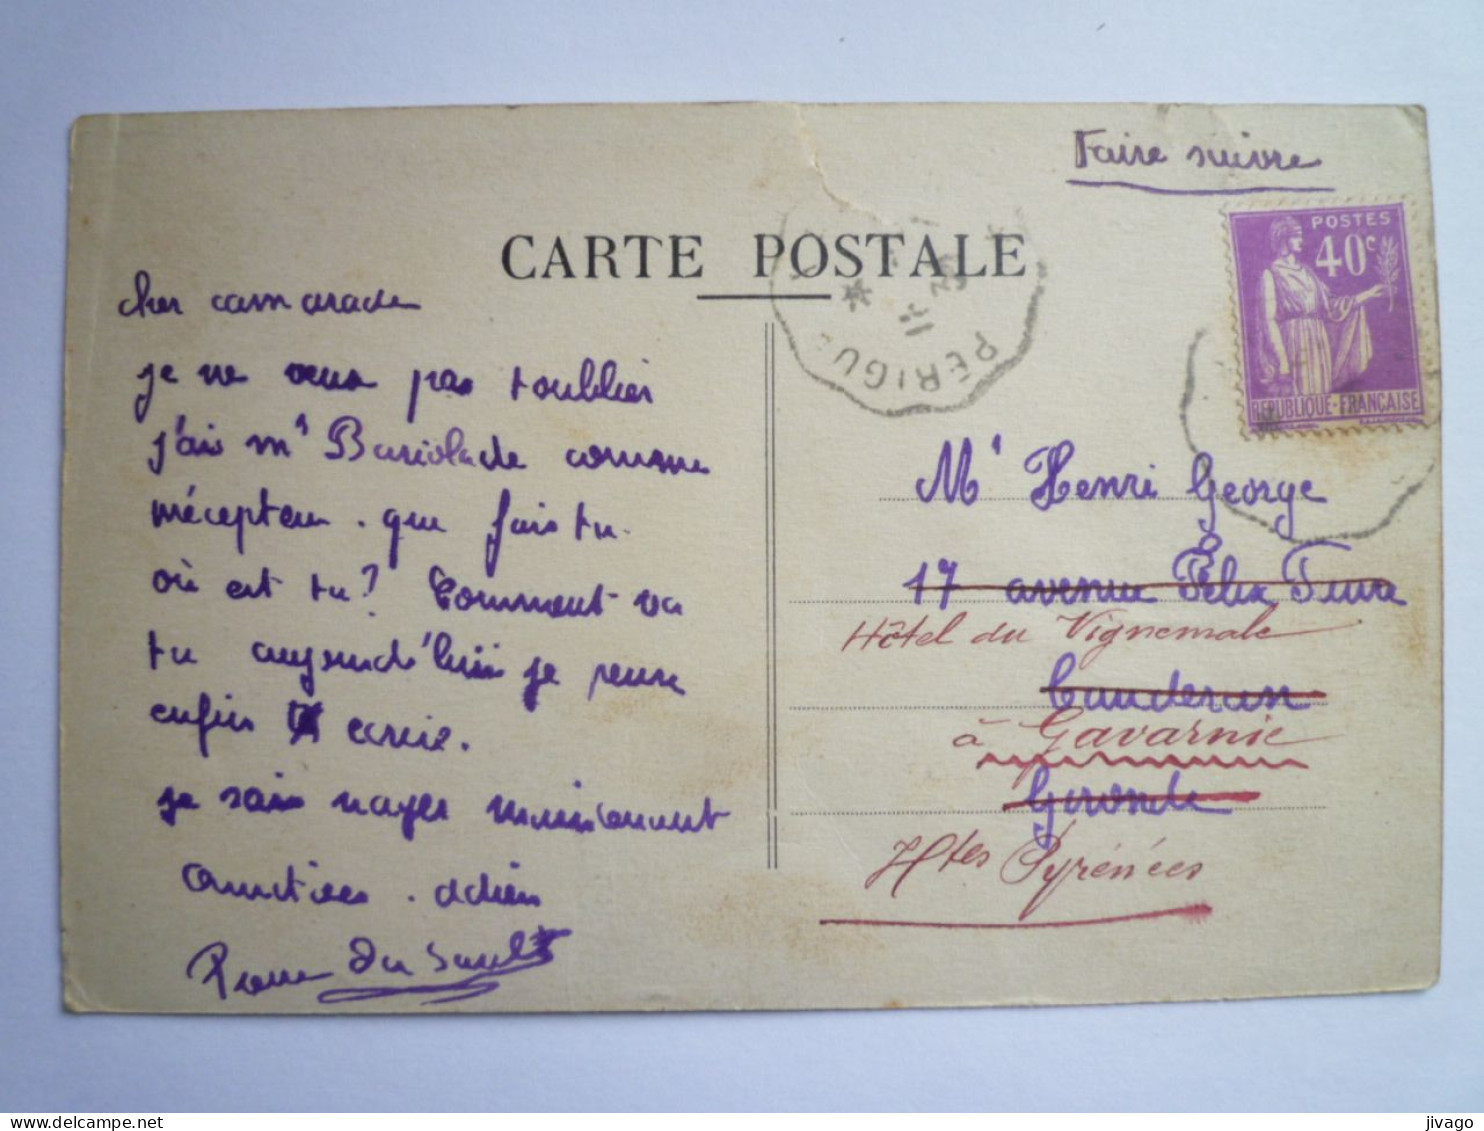 Faire suivre
POSTES
40c
REPUBLIQUE-FRANÇAISE
CARTE POSTALE
PERIGU
cher camarade
je ne veux pas t'oublier
j'ai mr Bariolade comme
précepteur. que fais tu
où est tu? Comment va
tu aujourd'hui je peux
enfin écrire.
je sais nager maintenant
amitiées. adieu
Pierre du Sault
Mr Henri George
17 avenue Félix Faure
Hôtel du Vignemale
Cauderan
à Gavarnie
Gironde
Htes Pyrénées
jivago